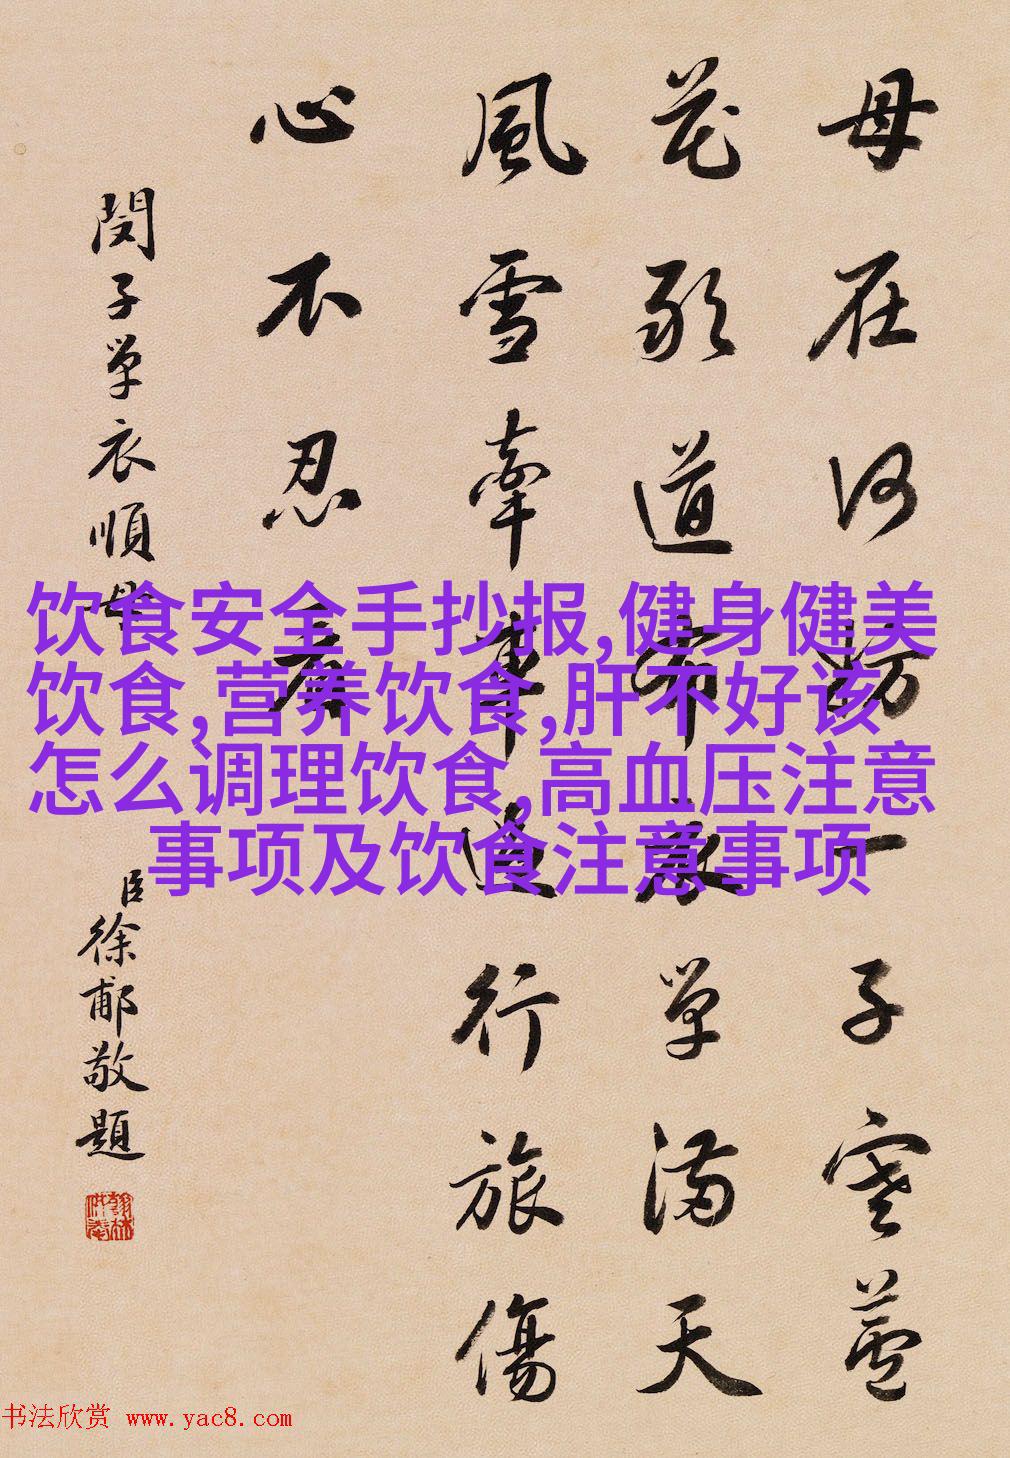 母在何妨一子寒蘆
花道單滿天
風雪牽車行旅傷
心不忍看
閔子單衣順母
臣徐郙敬題
饮食安全手抄报,健身健美
饮食,营养饮食,肝不好该
怎么调理饮食,高血压注意
事项及饮食注意事项
书法欣赏 www.yac8.com